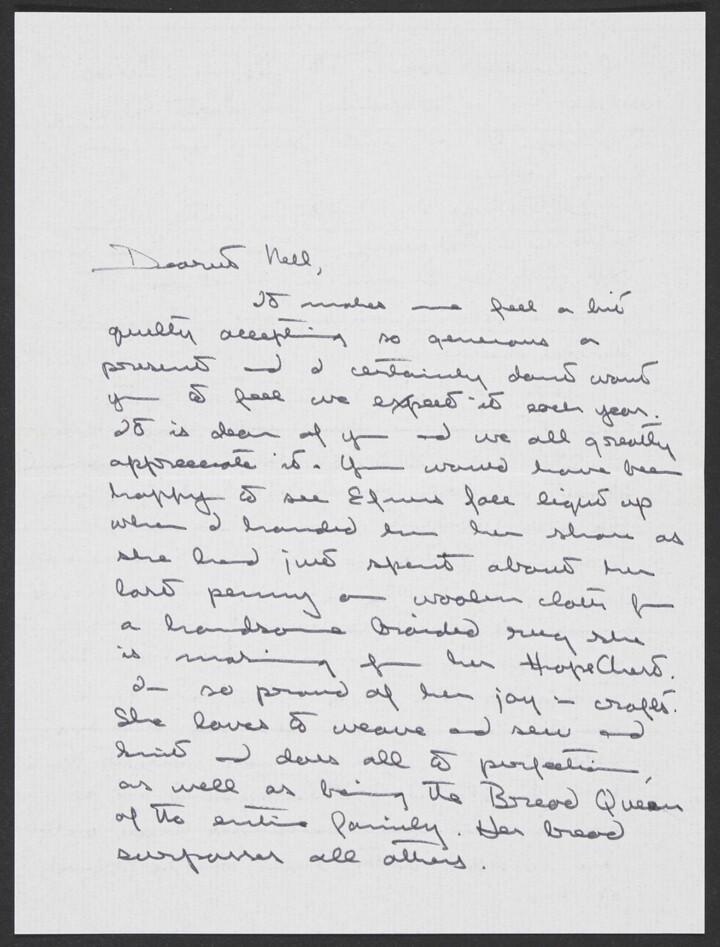 Dearest Nell,
It makes me feel a bit
guilty accepting so generous a
present and I certainly dont want
you to feel we expect it each year.
It is dear of you and we all greatly
appreciate it. You would have been
happy to see Efners face light up
when I handed her her share as
she had just spent about her
last penny on woolen cloth for
a handsome braided rug she
is making for her Hope Chest.
I'm so proud of her joy in crafts.
She loves to weave and sew and
knit and does all to perfection,
as well as being the Bread Queen
of the entire family. Her bread
surpasses all others.